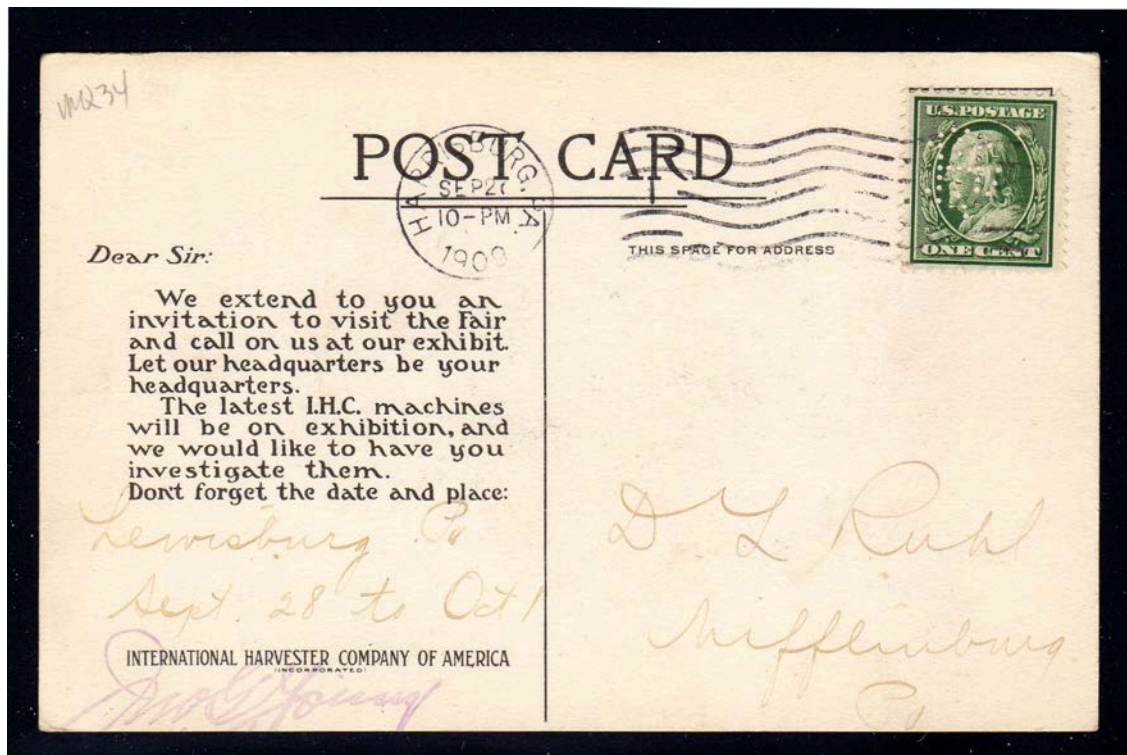 POST CARD
HARRISBURG, PA.
SEP 2
10-PM
1909
U.S. POSTAGE
ONE CENT
THIS SPACE FOR ADDRESS
Dear Sir:
We extend to you an
invitation to visit the Fair
and call on us at our exhibit.
Let our headquarters be your
headquarters.
The latest I.H.C. machines
will be on exhibition, and
we would like to have you
investigate them.
Dont forget the date and place:
Lewisburg Pa
Sept. 28 to Oct 1
INTERNATIONAL HARVESTER COMPANY OF AMERICA
(INCORPORATED)
Jno G Young
D L Ruhl
Mifflinburg
Pa